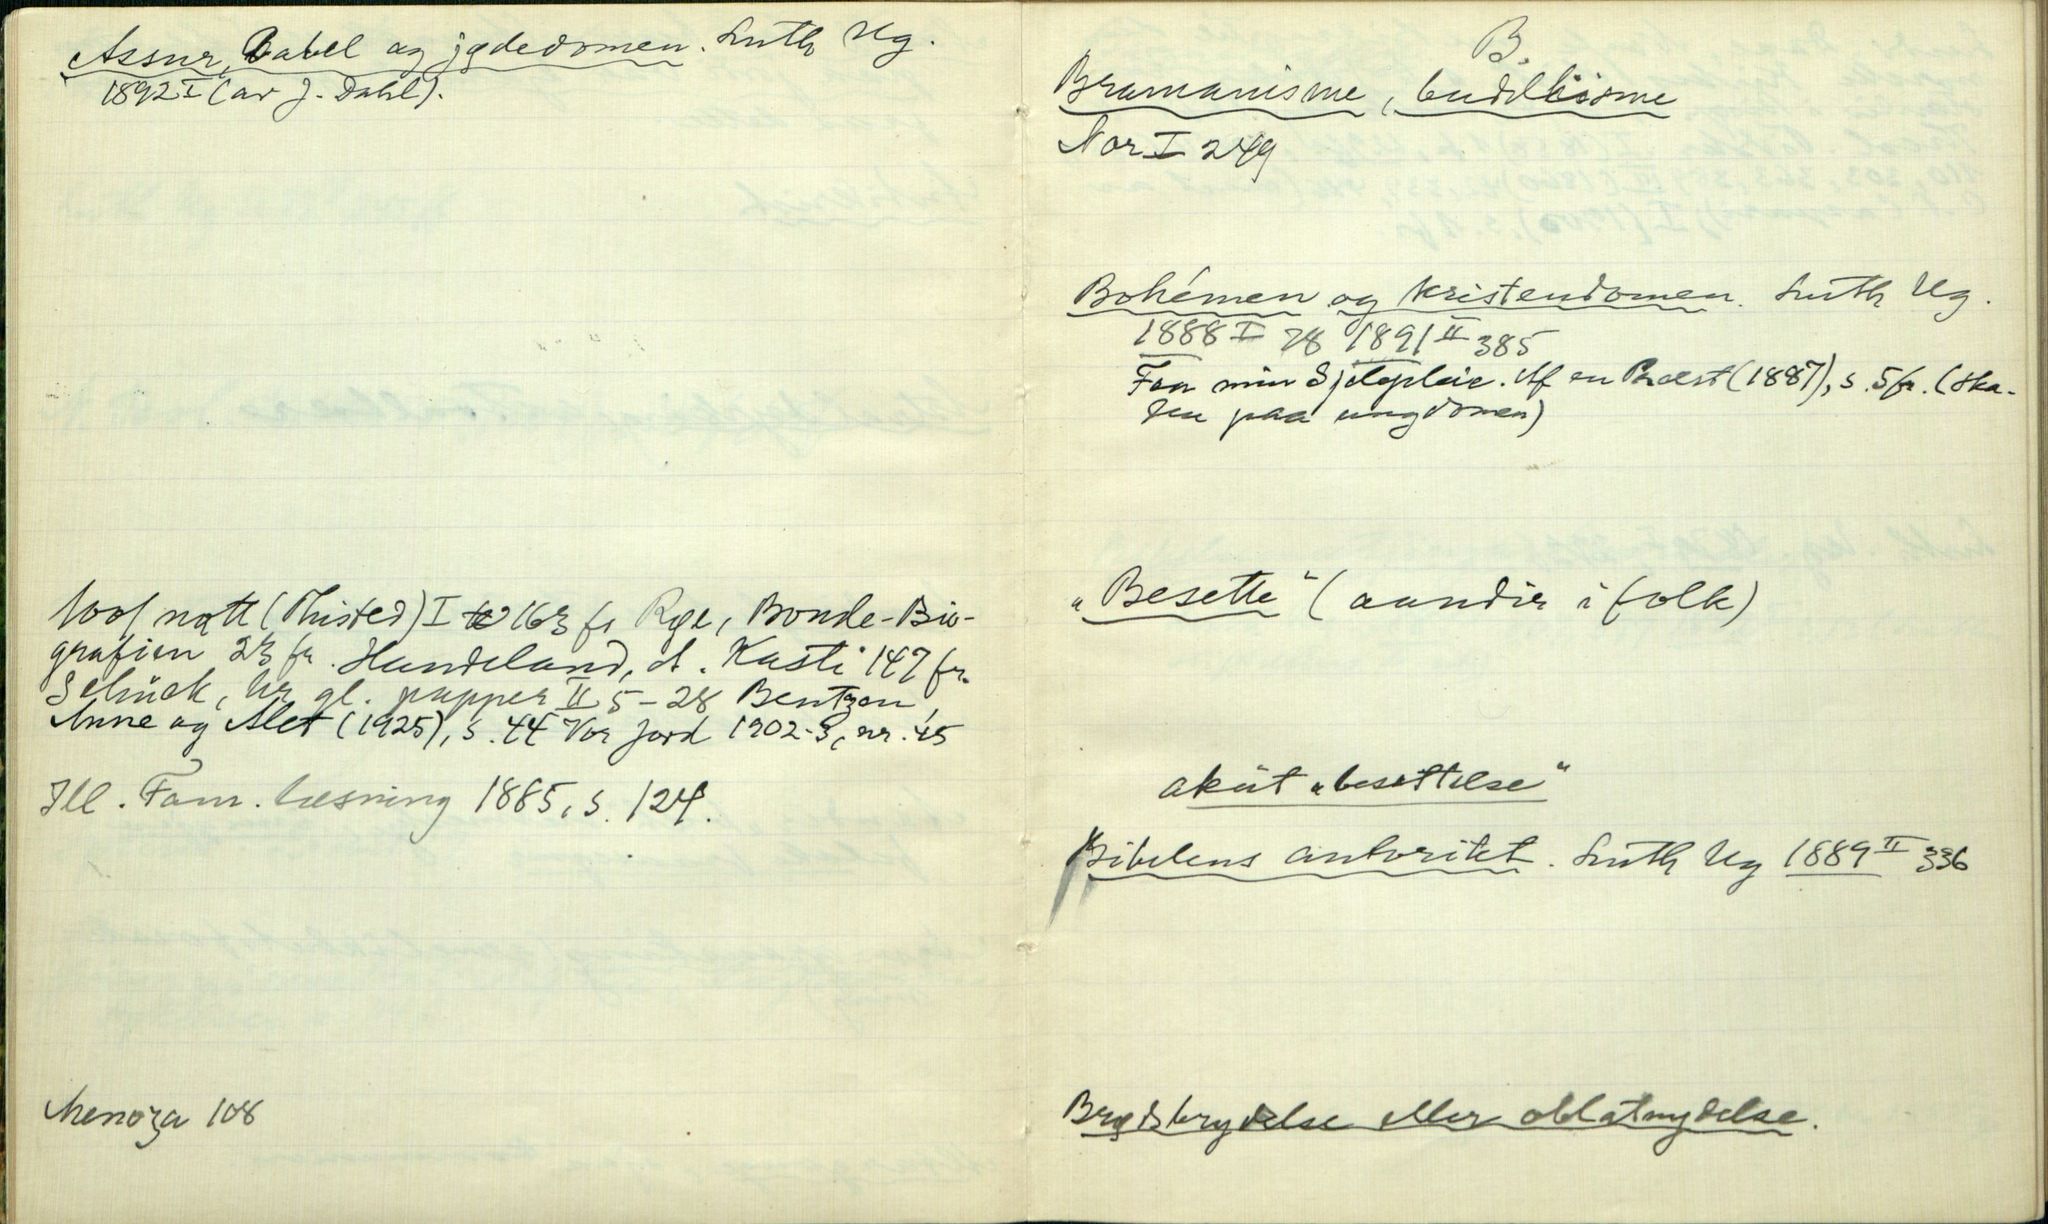 Assur, Babel og jødedomen. Luth Ug.
1892 I (av J. Dahl).
natt (Thisted) I 163 fr Rge, Bonde-Bio-
grafien 23 fr. Handeland, d. Kasti 147 fr.
Schück, gl. papper II 5-28 Bentzon,
Anne og Alet (1925), s. 44 Vor Jord 1902-3, nr. 45
Ill. Fam. læsning 1885, s. 124.
Menoza 108
B.
Bramanisme, buddhisme
Nor I 249
Bohémen og kristendomen. Luth Ug.
1888 I 28 1891 II 385
Fra min Sjælepleie. Af en Præst (1887), s. 5 fr. (Ska-
den paa ungdomen)
"Besette" (aandir i folk)
akut "besettelse"
Bibelens autoritet. Luth Ug 1889 II 336
Brødsbrydelse eller oblatnydelse.